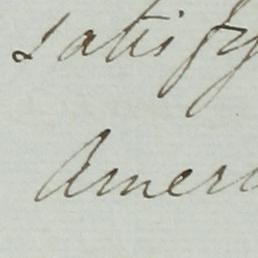 satisfy
Ameri